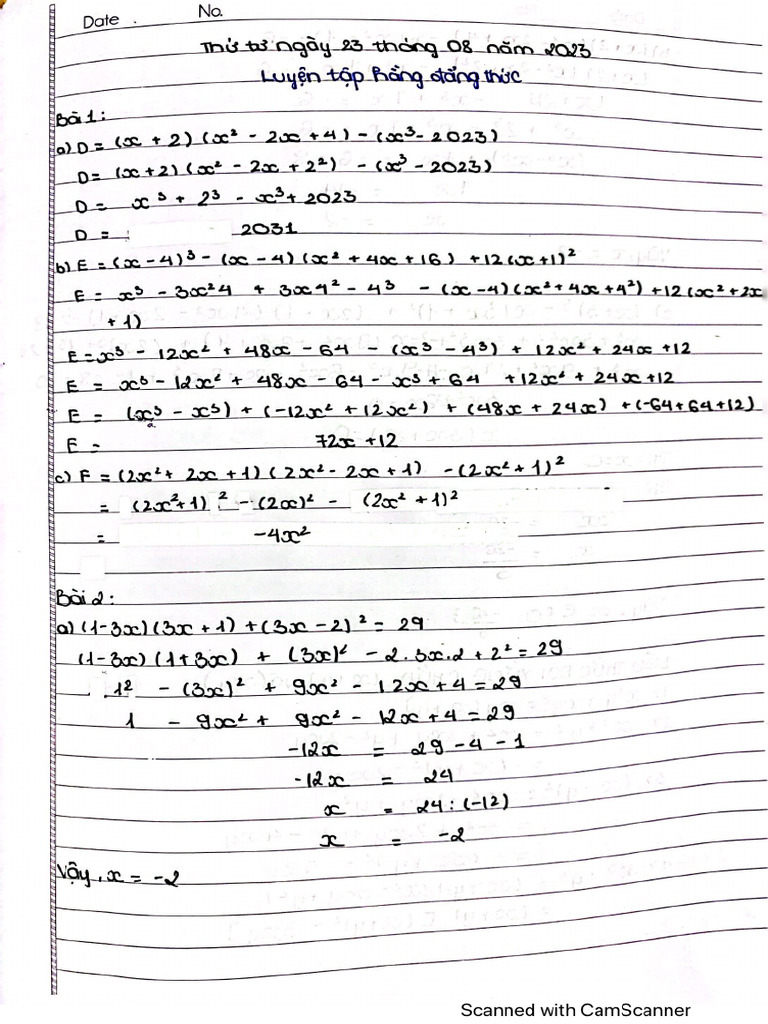 Date . No.
Thứ tư ngày 23 tháng 08 năm 2023
Luyện tập hằng đẳng thức
Bài 1:
a) D = (x + 2) (x² - 2x + 4) - (x³ - 2023)
D = (x + 2) (x² - 2x + 2²) - (x³ - 2023)
D = x³ + 2³ - x³ + 2023
D = 2031
b) E = (x - 4)³ - (x - 4) (x² + 4x + 16) + 12(x + 1)²
E = x³ - 3x²4 + 3x4² - 4³ - (x - 4)(x² + 4x + 4²) + 12(x² + 2x
+ 1)
E = x³ - 12x² + 48x - 64 - (x³ - 4³) + 12x² + 24x + 12
E = x³ - 12x² + 48x - 64 - x³ + 64 + 12x² + 24x + 12
E = (x³ - x³) + (-12x² + 12x²) + (48x + 24x) + (-64 + 64 + 12)
E = 72x + 12
c) F = (2x² + 2x + 1) (2x² - 2x + 1) - (2x² + 1)²
= (2x² + 1)² - (2x)² - (2x² + 1)²
= -4x²
Bài 2:
a) (1 - 3x) (3x + 1) + (3x - 2)² = 29
(1 - 3x) (1 + 3x) + (3x)² - 2 . 3x . 2 + 2² = 29
1² - (3x)² + 9x² - 12x + 4 = 29
1 - 9x² + 9x² - 12x + 4 = 29
-12x = 29 - 4 - 1
-12x = 24
x = 24 : (-12)
x = -2
Vậy, x = -2
Scanned with CamScanner